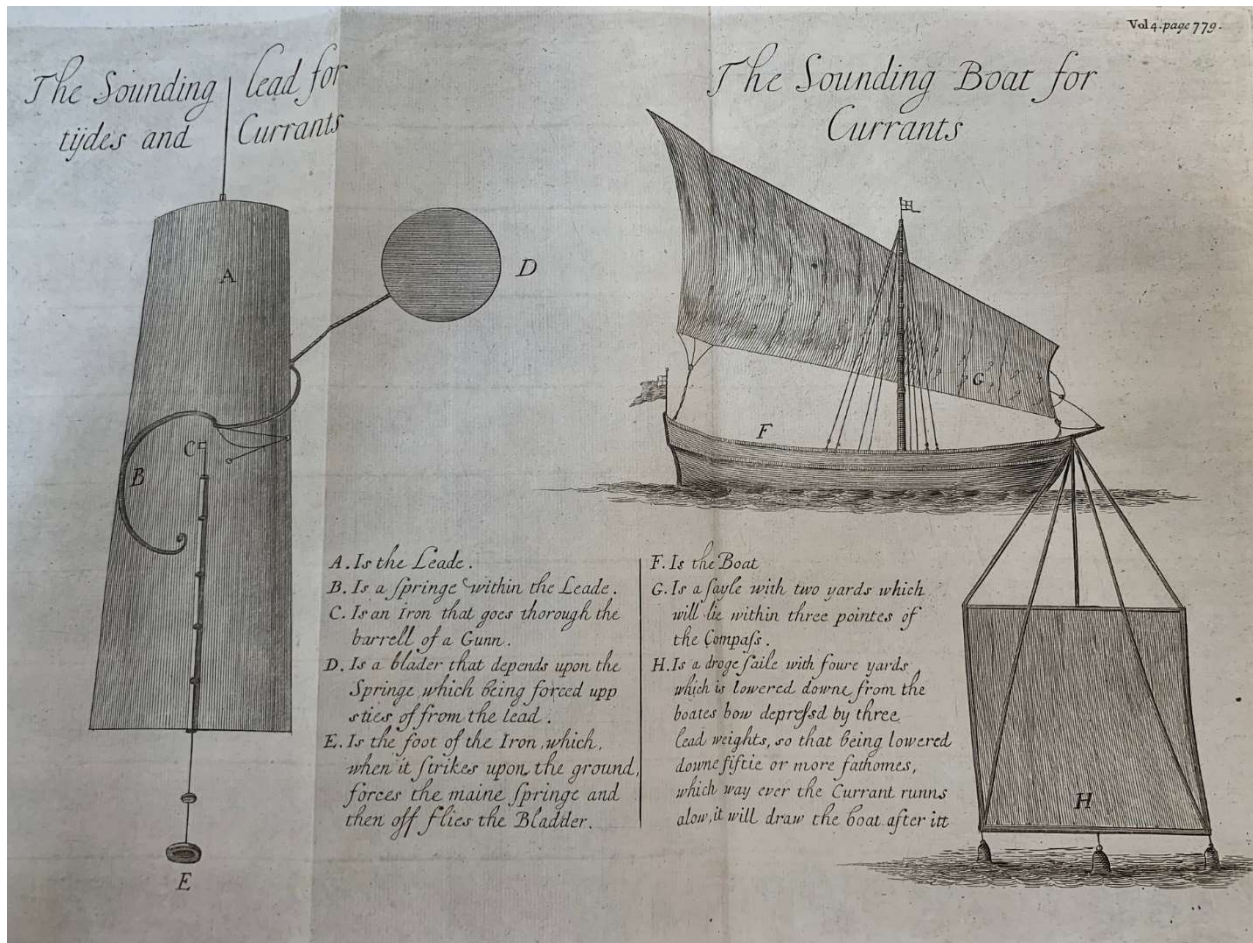 Vol 4. page 779.
The Sounding lead for
tijdes and Currants
A
B
C
D
E
A. Is the Leade.
B. Is a springe within the Leade.
C. Is an Iron that goes thorough the
barrell of a Gunn.
D. Is a blader that depends upon the
Springe which being forced upp
sties of from the lead.
E. Is the foot of the Iron, which,
when it strikes upon the ground,
forces the maine springe and
then off flies the Bladder.
The Sounding Boat for
Currants
G
F
H
F. Is the Boat
G. Is a sayle with two yards which
will lie within three pointes of
the Compass.
H. Is a droge saile with foure yards,
which is lowered downe from the
boates bow depressd by three
lead weights, so that being lowered
downe fiftie or more fathomes,
which way ever the Currant runns
alow, it will draw the boat after itt